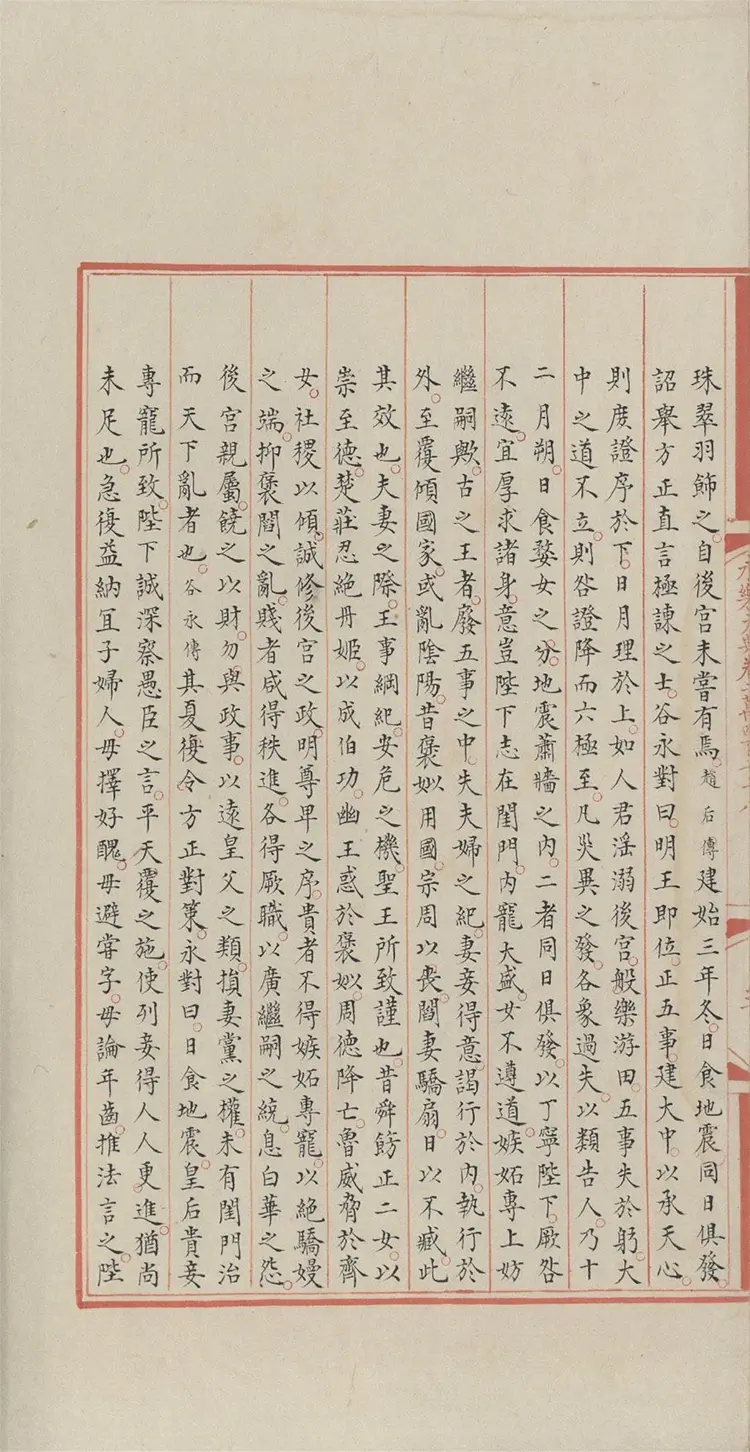 珠翠羽飾之。自後宮未嘗有焉。趙后傳建始三年冬。日食地震同日俱發。
詔舉方正直言極諫之士。谷永對曰。明王即位。正五事。建大中。以承天心。
則庶證序於下。日月理於上。如人君淫溺後宮。般樂游田。五事失於躬。大
中之道不立。則咎證降而六極至。凡災異之發。各象過失。以類告人。乃十
二月朔。日食婺女之分。地震蕭牆之內。二者同日俱發。以丁寧陛下。厥咎
不遠。宜厚求諸身。意豈陛下志在閨門。內寵大盛。女不遵道。嫉妬專上妨
繼嗣歟。古之王者。廢五事之中。失夫婦之紀。妻妾得意。謁行於內。執行於
外。至覆傾國家。或亂陰陽。昔褒姒用國。宗周以喪。閻妻驕扇。日以不臧。此
其效也。夫妻之際。王事綱紀。安危之機。聖王所致謹也。昔舜飭正二女。以
崇至德。楚莊忍絕丹姬。以成伯功。幽王惑於褒姒。周德降亡。魯威脅於齊
女。社稷以傾。誠修後宮之政。明尊卑之序。貴者不得嫉妬專寵。以絕驕嫚
之端。抑褒閻之亂。賤者咸得秩進。各得厥職。以廣繼嗣之統。息白華之怨。
後宮親屬。饒之以財。勿與政事。以遠皇父之類。損妻黨之權。未有閨門治
而天下亂者也。谷永傳其夏復令方正對策。永對曰。日食地震。皇后貴妾
專寵所致。陛下誠深察愚臣之言。平天覆之施。使列妾得人人更進。猶尚
未足也。急復益納宜子婦人。毋擇好醜。毋避嘗字。毋論年齒。推法言之。陛